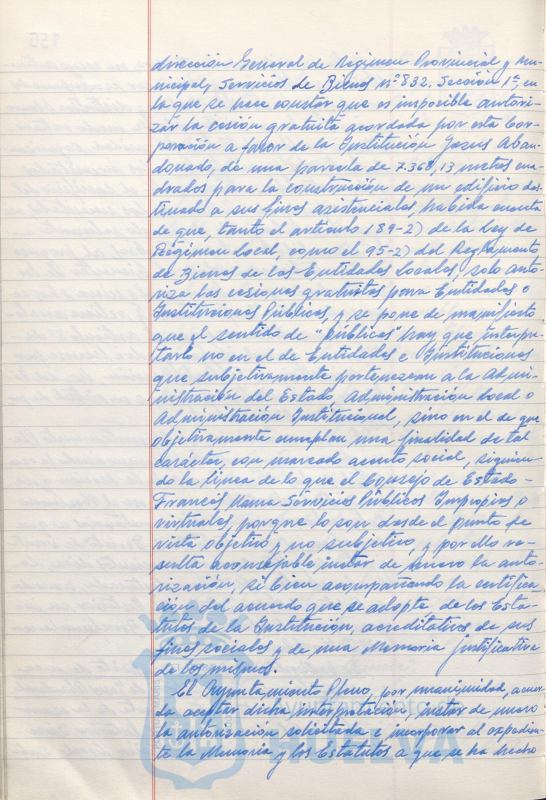 dirección General de Régimen Provincial y Mu-
nicipal, Servicios de Bienes nº 832, Sección 1ª, en
la que se hace constar que es imposible autori-
zar la cesión gratuita acordada por esta Cor-
poración a favor de la Institución Jesus Aban-
donado, de una parcela de 7.368,13 metros cua-
drados para la construcción de un edificio des-
tinado a sus fines asistenciales, habida cuenta
de que, tanto el artículo 189-2) de la Ley de
Régimen Local, como el 95-2) del Reglamento
de Bienes de las Entidades Locales, solo auto-
riza las cesiones gratuitas para Entidades o
Instituciones Públicas, y se pone de manifiesto
que el sentido de "públicas" hay que interpre-
tarlo no en el de Entidades e Instituciones
que subjetivamente pertenezcan a la Admi-
nistración del Estado, Administración Local o
Administración Institucional, sino en el de que
objetivamente cumplan una finalidad de tal
carácter, con marcado acento social, siguien-
do la línea de lo que el Consejo de Estado
Francés llama Servicios Públicos Impropios o
virtuales, porque lo son desde el punto de
vista objetivo y no subjetivo, y por ello re-
sulta aconsejable instar de nuevo la auto-
rización, si bien acompañando la certifica
ción del acuerdo que se adopte de los Esta-
tutos de la Institución, acreditativos de sus
fines sociales y de una Memoria justificativa
de los mismos.
El Ayuntamiento Pleno, por unanimidad, acuer-
da aceptar dicha interpretación, instar de nuevo
la autorización solicitada e incorporar al expedien-
te la Memoria y los Estatutos a que se ha hecho